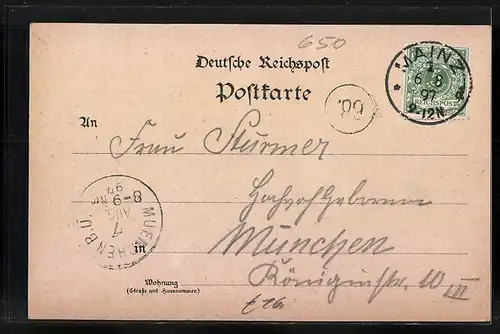 650
Deutsche Reichspost
Postkarte
MAINZ
1
6 8
97
9-12N.
REICHSPOST
Bd.
An
Frau Sturmer
Hochwohlgeboren
in
München
Königinstr. 10
III
Wohnung
(Straße und Hausnummer)
MUENCHEN B.Ü.
7
AUG.
8-9 Nm
97